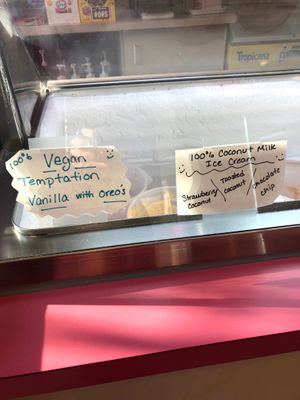 POPS
Tropicana
100% Vegan
Temptation
Vanilla with Oreo's
100% Coconut Milk
Ice Cream
Strawberry coconut
Toasted coconut
chocolate chip